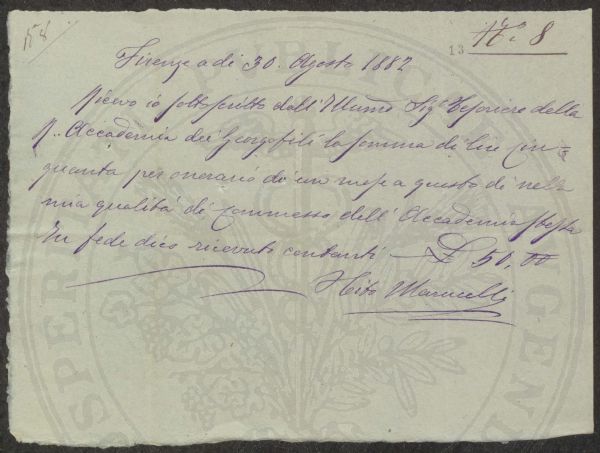 N° 8
13 N° 8
Firenze a dì 30. Agosto 1882
Ricevo io sottoscritto dall'Illumo Sigr Tesoriere della
R. Accademia dei Georgofili la somma di lire cin=
quanta per onorario di un mese a questo dì nella
mia qualità di Commesso dell'Accademia stessa
In fede dico ricevuto contanti — £ 50,00
Marucelli
PROSPERITA PUBLIC AUGENDA